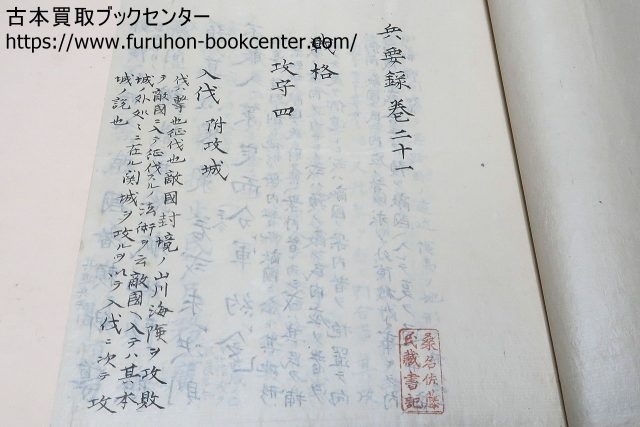 古本買取ブックセンター
https://www.furuhon-bookcenter.com/
兵要録巻二十一
戦格
攻守四
入伐 附攻城
伐ハ撃也征伐也敵國封境ノ山川海険ヲ攻敗
ヲ敵國ニ入テ征伐スルノ法術ヲ云敵國ヘ入テハ其本
城ノ外処々ニ在ル関城ヲ攻ルヲ以テ入伐ニ次テ攻
城ノ説也
桑名佐藤
氏蔵書記